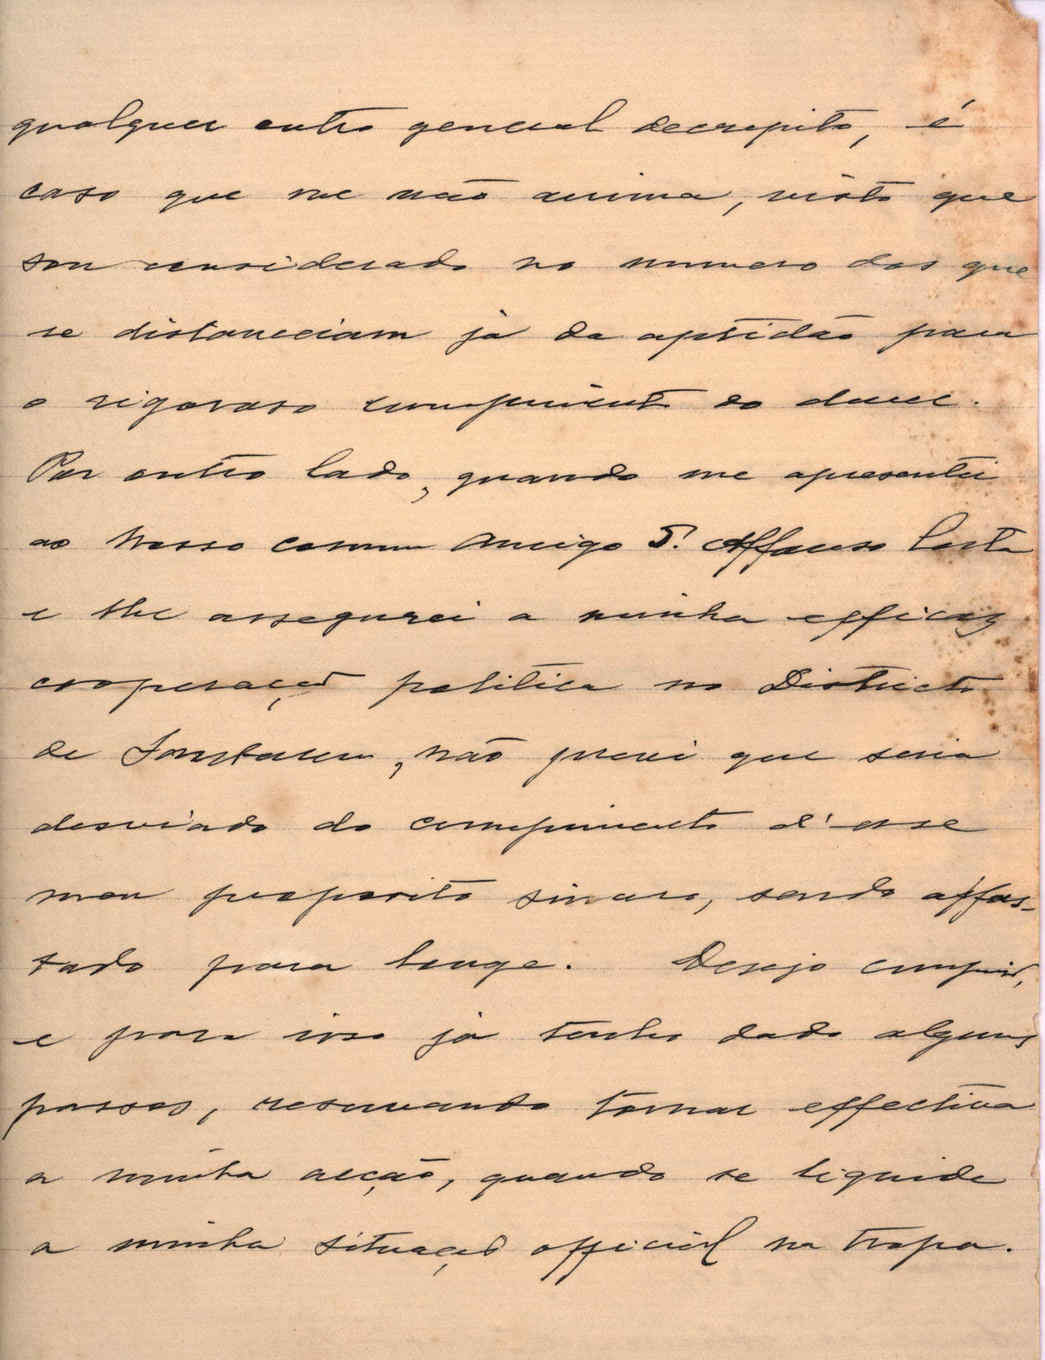 qualquer outro general decrepito, é
caso que me não anima, visto que
sou considerado no numero dos que
se distanceiam já da aptidão para
o rigoroso cumprimento do dever.
Por outro lado, quando me apresentei
ao Nosso comum Amigo S.r Affonso Costa
e lhe assegurei a minha efficaz
cooperação politica no Districto
de Santarem, não previ que seria
desviado do comprimento d'esse
meu proposito sincero, sendo affas-
tado para longe. Desejo cumprir,
e para isso já tenho dado alguns
passos, reservando tornar effectiva
a minha acção, quando se liquide
a minha situação official na tropa.